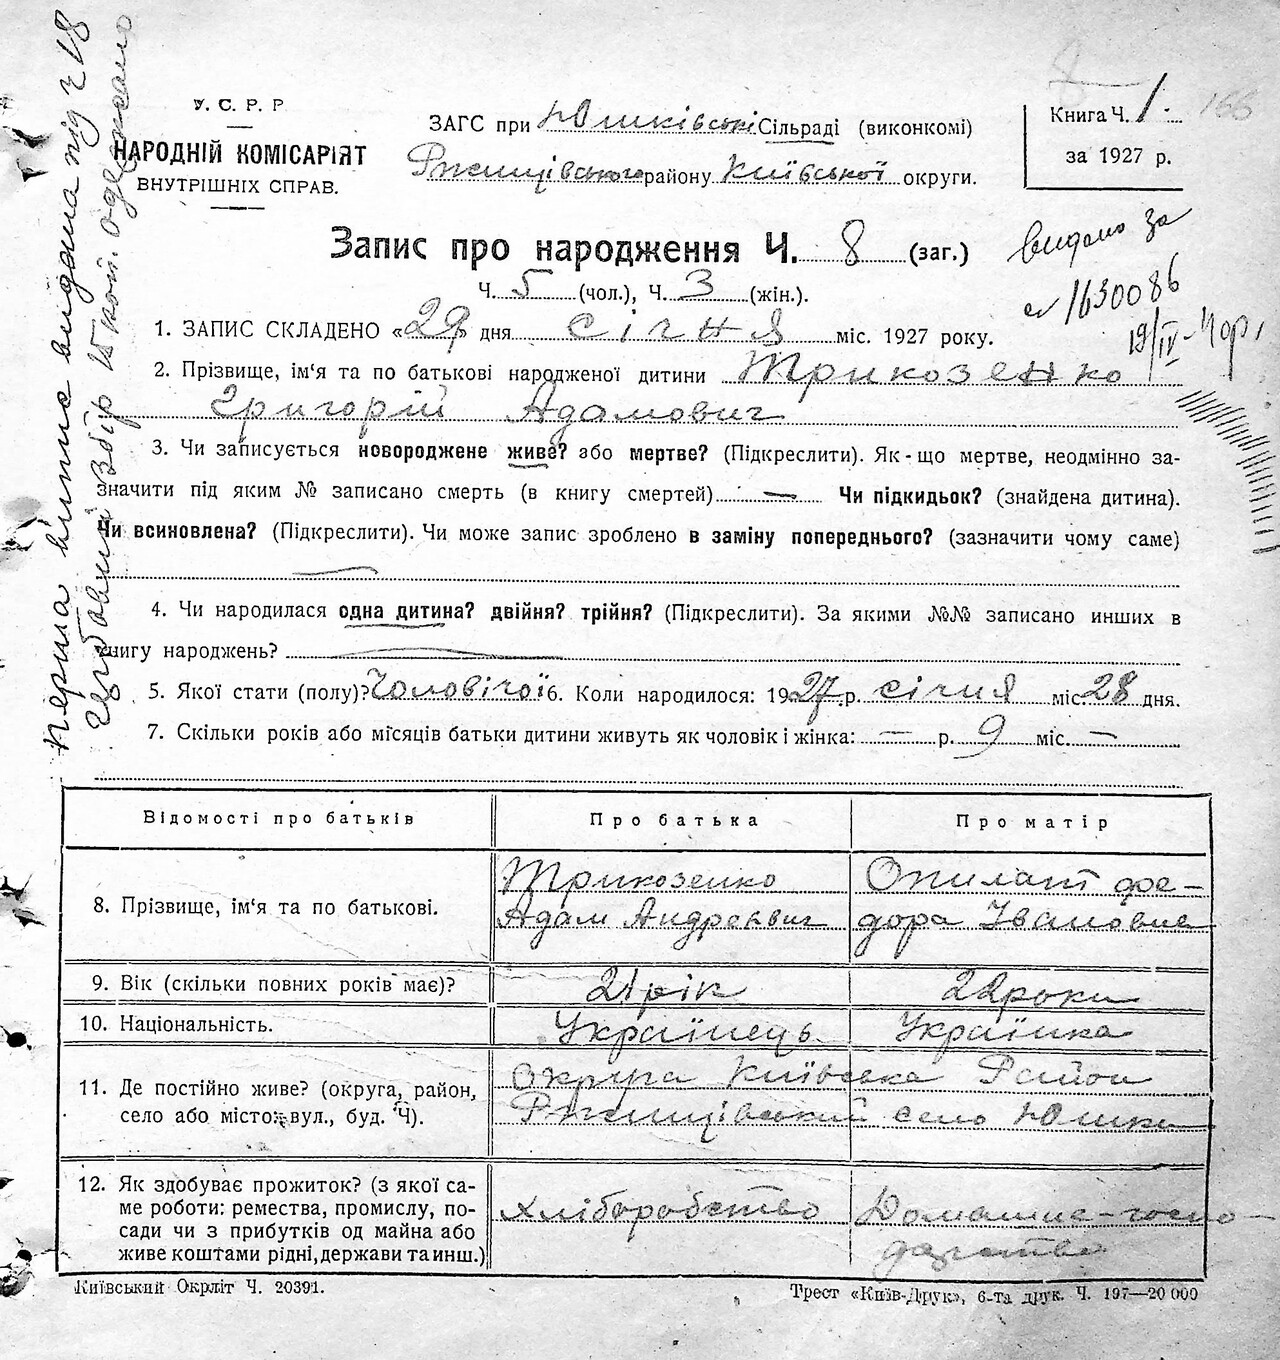 Перша випис видана під ч 18
Цербовий збір 15 коп. одержано
У. С. Р. Р
НАРОДНІЙ КОМІСАРІЯТ
ВНУТРІШНІХ СПРАВ.
ЗАГС при Юшківські Сільраді (виконкомі)
Ржищівського району Київської округи.
Книга Ч. 1
за 1927 р.
166
Запис про народження Ч. 8 (заг.)
Ч. 5 (чол.), Ч. 3 (жін.).
видано за
1630086
19/IV
1. ЗАПИС СКЛАДЕНО «29» дня січня міс. 1927 року.
2. Прізвище, ім'я та по батькові народженої дитини Трикозенко
Григорій Адамович
3. Чи записується новороджене живе? або мертве? (Підкреслити). Як-що мертве, неодмінно за-
значити під яким № записано смерть (в книгу смертей) — Чи підкидьок? (знайдена дитина).
Чи всиновлена? (Підкреслити). Чи може запис зроблено в заміну попереднього? (зазначити чому саме)
4. Чи народилася одна дитина? двійня? трійня? (Підкреслити). За якими №№ записано инших в
книгу народжень?
5. Якої стати (полу)? Чоловічої 6. Коли народилося: 1927 р. січня міс. 28 дня.
7. Скільки років або місяців батьки дитини живуть як чоловік і жінка: — р. 9 міс. —
Відомості про батьків Про батька Про матір
8. Прізвище, ім'я та по батькові.
Трикозенко
Адам Андреєвич
Опилат Фе-
дора Івановна
9. Вік (скільки повних років має)? 21 рік 22 роки
10. Національність. Українець Українка
11. Де постійно живе? (округа, район,
село або місто: вул., буд. Ч).
Округа Київська Район
Ржищівський село Юшки
12. Як здобуває прожиток? (з якої са-
ме роботи: ремества, промислу, по-
сади чи з прибутків од майна або
живе коштами рідні, держави та инш.)
Хліборобство
Домашнє-госпо-
дарство
Київський Окрліт Ч. 20391.
Трест «Київ-Друк», 6-та друк. Ч. 197—20 000